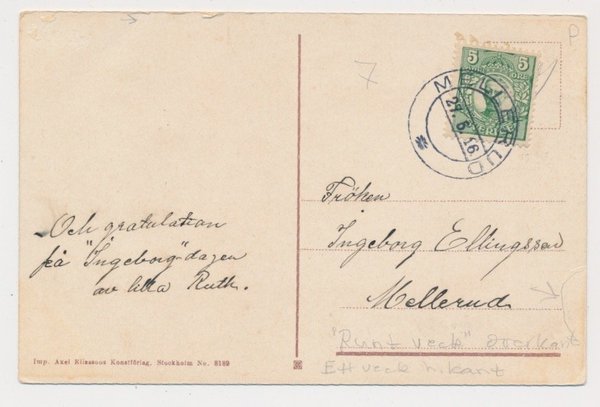 7
P
5 5
MELLERUD
27.6.16
Och gratulation
på "Ingeborg"dagen
av lilla Ruth.
Fröken
Ingeborg Ellingsson
Mellerud
"Runt veck" överkant
Ett veck h.kant
Imp. Axel Eliassons Konstförlag, Stockholm No. 8189